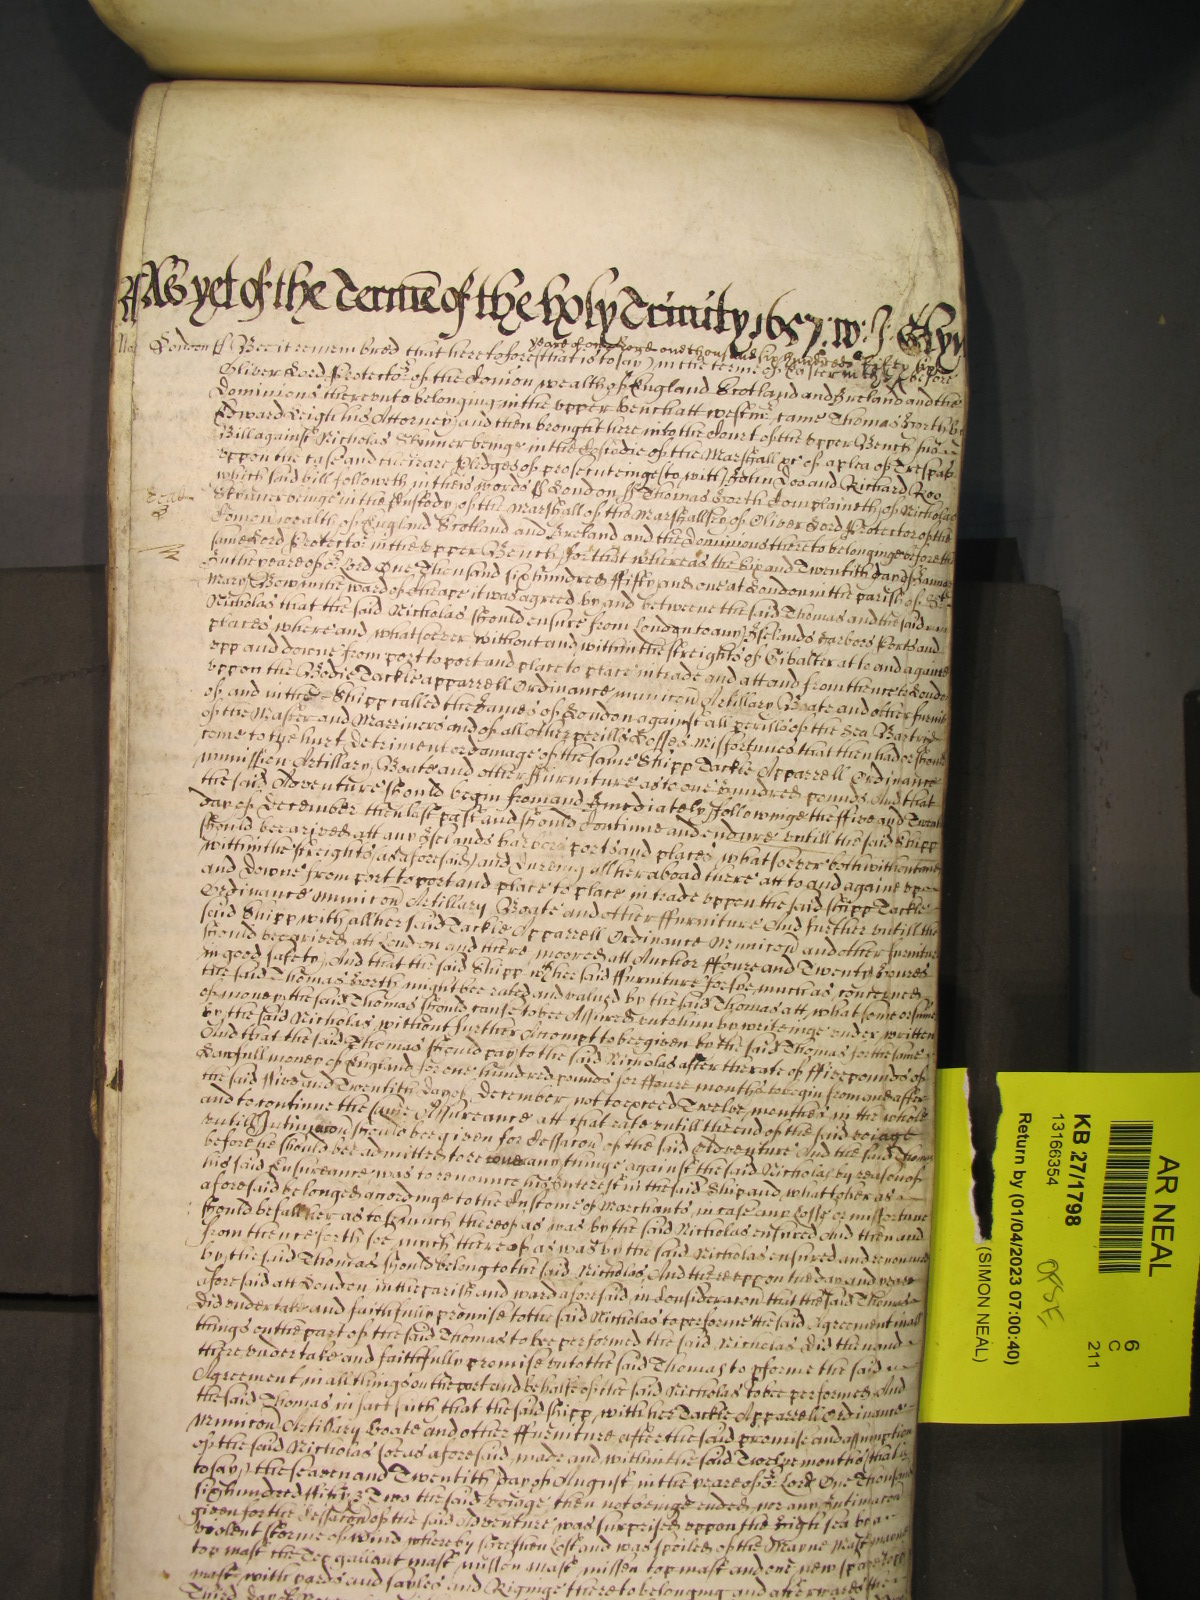 As yet of the Terme of the holy Trinity 1657. W: J:
London ss Bee it remembred that heretofore (that is to say) in the terme of Easter in the
yeare of our Lord one thousand six hundred fifty six before
Oliver Lord Protector of the Comon wealth of England Scotland and Ireland and the
Dominions thereunto belonging in the upper bench att westmr came Thomas North by
Edward Leigh his Attorney and then brought here into the Court of the upper Bench his
Bill against Nicholas Skinner beinge in the Custodie of the Marshall &c of a plea of Trespas
uppon the case and there are pledges of prosecuteinge to witt John Doo and Richard Roo
which said bill followeth in theis words ss London ss Thomas North Complaineth of Nicholas
Skinner beinge in the Custody of the Marshall of the Marshallsey of Oliver Lord Protector of the
Comon wealth of England Scotland and Ireland and the dominions thereto belonginge before the
same Lord Protector in the upper Bench for that whereas the Six and Twentith day of January
In the yeare of or Lord One Thousand six hundred ffifty and one at London in the parish of St
Mary Bow in the ward of Cheape it was agreed by and betweene the said Thomas and the said
Nicholas that the said Nicholas should ensure from London to any Islands harbors Ports and
places where and whatsoever without and within the streights of Gibalter at to and againe
upp and downe from port to port and place to place in trade and att and from thence to London
uppon the Bodie Tackle apparrell Ordinance municon Artillary Boate and other furniture
of and in the Shipp called the James of London against all perills of the Sea Bartrie
of the Master and Marriners and of all other perills Losses Misfortunes that then had or should
come to the hurt detriment or damage of the same Shipp Tackle Apparrell Ordinance
munission Artillary Boate and other ffurniture as to one hundred pounds And that
the said Adventure should begin from and Imediately followinge the ffive and Twentith
day of December then last past and should Continue and endure untill the said Shipp
should bee arived att any Islands harbors ports and places whatsoever both without and
within the streights (as aforesaid) and during all her aboad there att to and againe upp
and downe from port to port and place to place in trade uppon the said shipp Tackle
Ordinance municon Artillary Boate and other ffurniture And further untill the
said Shipp with all her said Tackle Apparrell Ordinance Municon and other furniture
should bee arived att London and there moored att Anchor ffoure and Twenty houres
in good safety And that the said Shipp with her said ffurniture for soe much as concerned
the said Thomas North might bee rated and valued by the said Thomas att what some or sume
of money the said Thomas should cause to bee Assured unto him by writeinge under written
by the said Nicholas without further Accompt to bee given by the said Thomas for the same
And that the said Thomas should pay to the said Nicholas after the rate of ffive pounds of
Lawfull money of England for one hundred pounds for ffoure months to begin from and after
the said ffive and Twentith day of December not to exceed Twelve monthes in the whole
and to continue the same Assureance att that rate untill the end of the said voiage
untill Intimacon should bee given for Cessacon of the said Adventure And the said Thomas
before he should bee admitted to recover any thinge against the said Nicholas by reason of
his said Ensureance was to renounce his Interest in the said Ship and what other as
aforesaid belonged acordinge to the Custome of Merchants in case any Losse or missfortune
should befall her as to soe much thereof as was by the said Nicholas ensured And then and
from thence forth soe much thereof as was by the said Nicholas ensured and renounced
by the said Thomas should belong to the said Nicholas And thereuppon the day and yeare
aforesaid att London in the parish and ward aforesaid in consideracon that the said Thomas
did undertake and faithfully promise to the said Nicholas to performe the said Agreement in all
things on the part of the said Thomas to bee performed the said Nicholas did then and
there undertake and faithfully promise unto the said Thomas to pforme the said
Agreement in all things on the part and behalfe of the said Nicholas to bee performed And
the said Thomas in fact saith that the said shipp with her Tackle Apparrell Ordinance
Municon Artillary Boate and other ffurniture after the said promise and assumption
of the said Nicholas soe as aforesaid made and within the said Twelve months that is
to say the seaven and Twentith day of August in the yeare of or Lord One Thousand
six hundred ffifty & Two the said voiage then not being ended nor any Intimacon
given for the Cessacon of the said Adventure was surprised uppon the high sea by a
violent storme of wind whereby shee then Lost and was spoiled of the Mayne Mast mayne
top mast the Top gallant mast missen mast missen top mast and one new spare topp
mast with yards and sayles and Rigginge thereto belonging and afterwards the
Third day
AR NEAL
KB 27/1798
13166354
Return by (01/04/2023 07:00:40)
(SIMON NEAL)
6
C
211